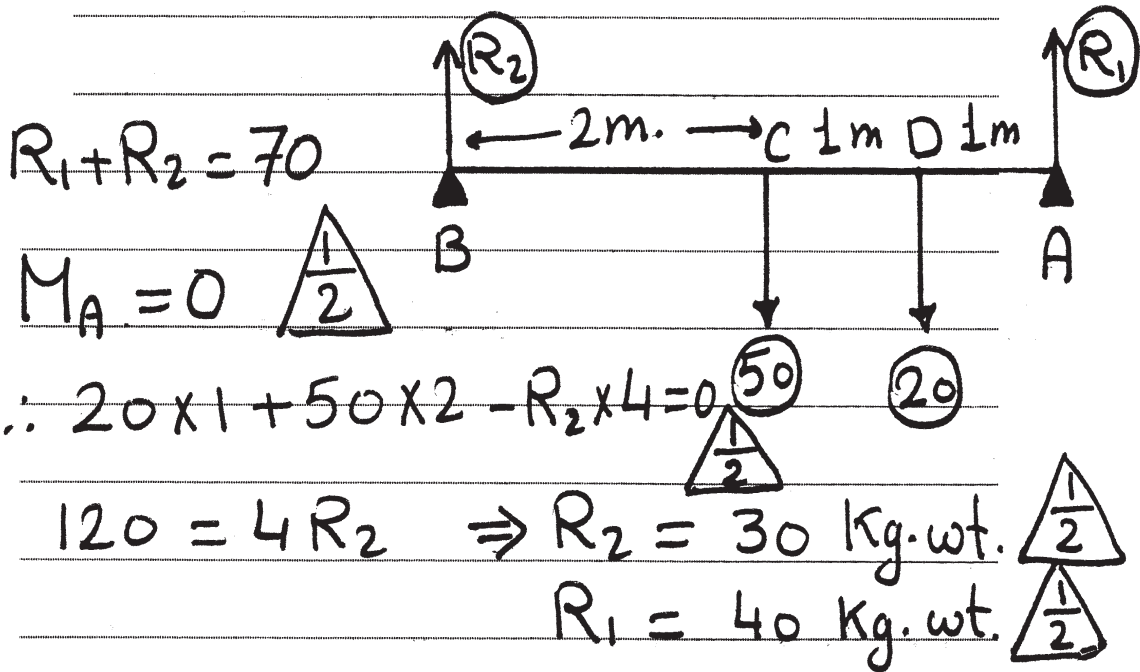 R₂ R₁
2m. C 1m D 1m
R₁ + R₂ = 70
B A
M_A = 0 1/2
50 20
∴ 20 × 1 + 50 × 2 - R₂ × 4 = 0 1/2
120 = 4 R₂ ⇒ R₂ = 30 Kg.wt. 1/2
R₁ = 40 Kg.wt. 1/2